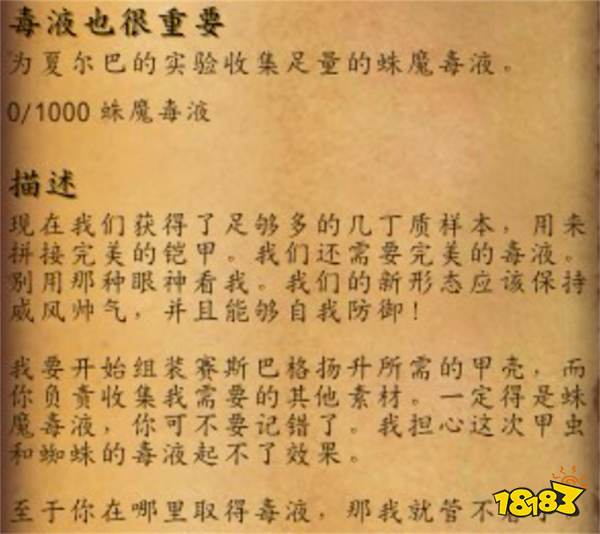 毒液也很重要
为夏尔巴的实验收集足量的蛛魔毒液。
0/1000 蛛魔毒液
描述
现在我们获得了足够多的几丁质样本，用来
拼接完美的铠甲。我们还需要完美的毒液。
别用那种眼神看我。我们的新形态应该保持
威风帅气，并且能够自我防御！
我要开始组装赛斯巴格扬升所需的甲壳，而
你负责收集我需要的其他素材。一定得是蛛
魔毒液，你可不要记错了。我担心这次甲虫
和蜘蛛的毒液起不了效果。
至于你在哪里取得毒液，那我就管不着
18183